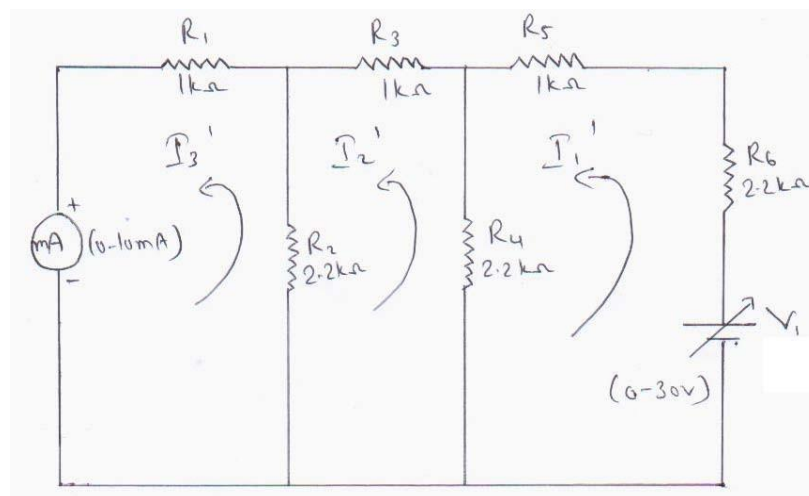 R1
1kΩ
R3
1kΩ
R5
1kΩ
I3'
I2'
I1'
R6
2.2kΩ
+
mA (0-10mA)
-
R2
2.2kΩ
R4
2.2kΩ
V1
(0-30V)